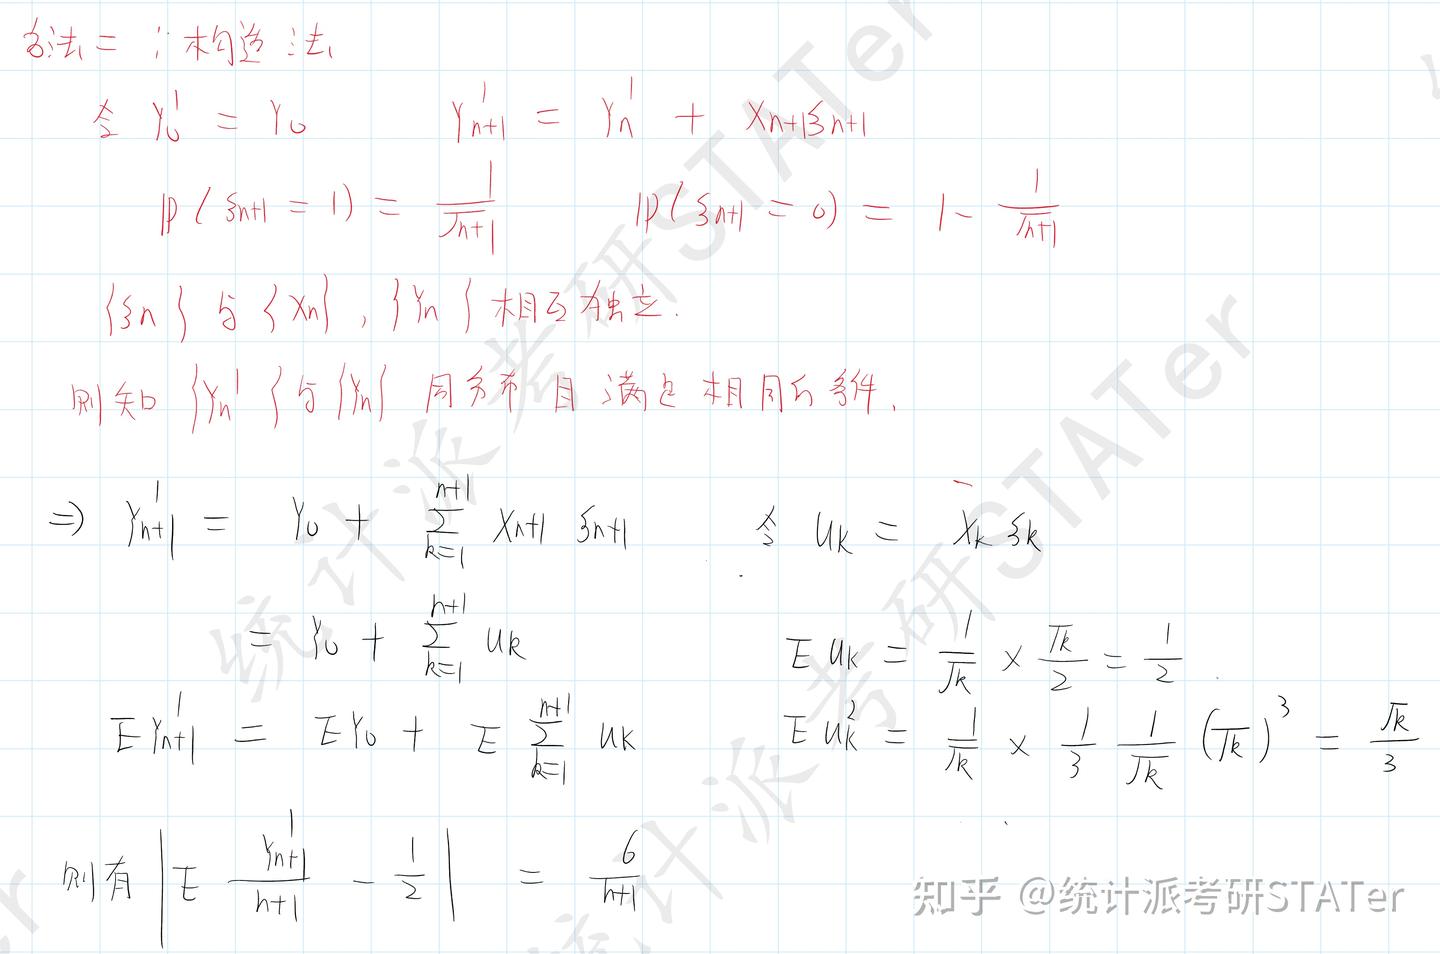 方法二：构造法
令 Y₀' = Y₀ Yₙ₊₁' = Yₙ' + Xₙ₊₁ξₙ₊₁
P(ξₙ₊₁ = 1) = 1/√(n+1) P(ξₙ₊₁ = 0) = 1 - 1/√(n+1)
{ξₙ} 与 {Xₙ}, {Yₙ} 相互独立.
则知 {Yₙ'} 与 {Yₙ} 同分布且满足相同的条件.
⇒ Yₙ₊₁' = Y₀ + ∑_{k=1}^{n+1} Xₙ₊₁ ξₙ₊₁ 令 uₖ = Xₖ ξₖ
= Y₀ + ∑_{k=1}^{n+1} uₖ E uₖ = 1/√k × √k/2 = 1/2
E Yₙ₊₁' = E Y₀ + E ∑_{k=1}^{n+1} uₖ E uₖ² = 1/√k × 1/3 1/√k (√k)³ = √k/3
则有 |E Yₙ₊₁'/(n+1) - 1/2| = 6/(n+1)
知乎 @统计派考研STATer
统计派考研STATer
统计派考研STATer